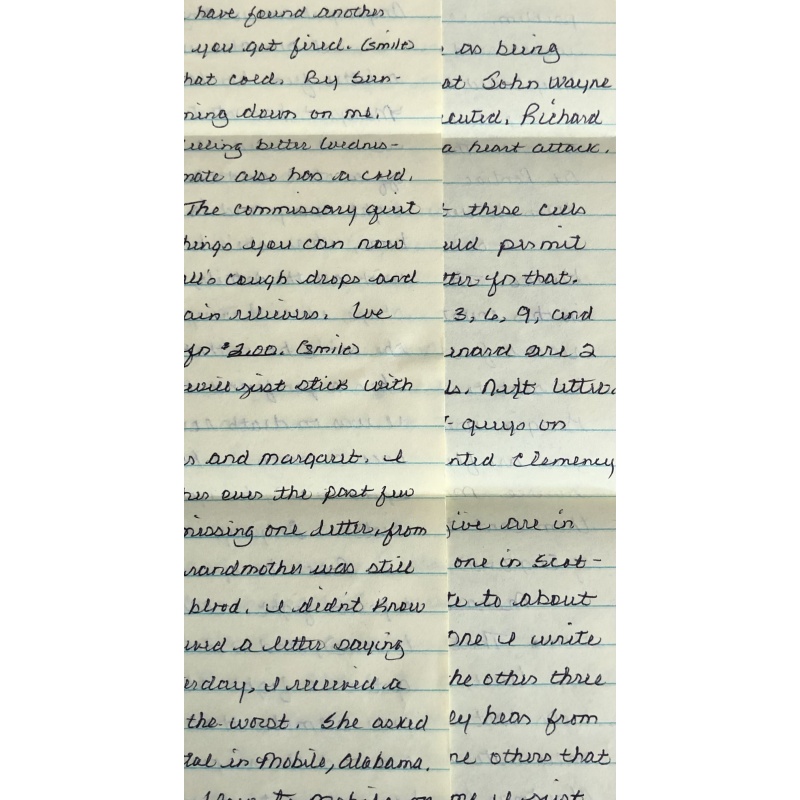 have found another
you got fired. (smile)
hat cold. By Sun-
ning down on me.
eeling better Wednes-
mate also has a cold.
The commissary quit
hings you can now
ll's cough drops and
ain relievers. I've
for $2.00. (smile)
will just stick with
s and Margaret. I
hes over the past few
missing one letter, from
randmother was still
blood. I didn't know
ived a letter saying
erday, I received a
the worst. She asked
tal in Mobile, Alabama.
as being
at John Wayne
cuted. Richard
a heart attack.
t these cells
uld permit
tter for that.
3, 6, 9, and
enard are 2
ls. Next letter.
t guys on
nted Clemency
five are in
one in Scot-
te to about
One I write
he other three
ey hear from
he others that
me I just